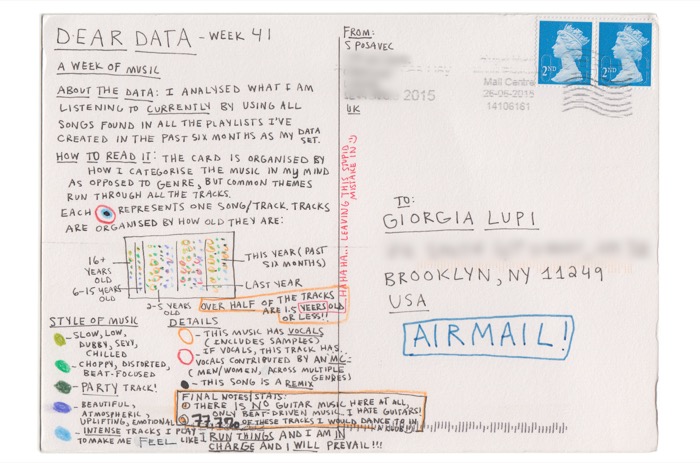 DEAR DATA - WEEK 41
A WEEK OF MUSIC
ABOUT THE DATA: I ANALYSED WHAT I AM
LISTENING TO CURRENTLY BY USING ALL
SONGS FOUND IN ALL THE PLAYLISTS I'VE
CREATED IN THE PAST SIX MONTHS AS MY DATA
SET.
HOW TO READ IT: THE CARD IS ORGANISED BY
HOW I CATEGORISE THE MUSIC IN MY MIND
AS OPPOSED TO GENRE, BUT COMMON THEMES
RUN THROUGH ALL THE TRACKS.
EACH REPRESENTS ONE SONG/TRACK. TRACKS
ARE ORGANISED BY HOW OLD THEY ARE:
16+
YEARS
OLD
6-15 YEARS
OLD
2-5 YEARS
OLD
THIS YEAR (PAST
SIX MONTHS)
LAST YEAR
OVER HALF OF THE TRACKS
ARE 1.5 YEARS OLD
OR LESS!!
STYLE OF MUSIC
- SLOW, LOW,
DUBBY, SEXY,
CHILLED
- CHOPPY, DISTORTED,
BEAT-FOCUSED
- PARTY TRACK!
- BEAUTIFUL,
ATMOSPHERIC,
UPLIFTING, EMOTIONAL
- INTENSE TRACKS I PLAY
TO MAKE ME FEEL LIKE I RUN THINGS AND I AM IN
CHARGE AND I WILL PREVAIL!!!
DETAILS
- THIS MUSIC HAS VOCALS
(INCLUDES SAMPLES)
- IF VOCALS, THIS TRACK HAS
VOCALS CONTRIBUTED BY AN MC.
(MEN/WOMEN, ACROSS MULTIPLE
GENRES)
- THIS SONG IS A REMIX
FINAL NOTES/STATS:
① THERE IS NO GUITAR MUSIC HERE AT ALL,
ONLY BEAT-DRIVEN MUSIC. I HATE GUITARS!
② 77.7% OF THESE TRACKS I WOULD DANCE TO IN
A CLUB!!!
HAHAHA... LEAVING THIS STUPID
MISTAKE IN :)
FROM:
S POSAVEC
2015
UK
Mail Centre
26-06-2015
14106161
2ND
2ND
TO:
GIORGIA LUPI
BROOKLYN, NY 11249
USA
AIRMAIL!